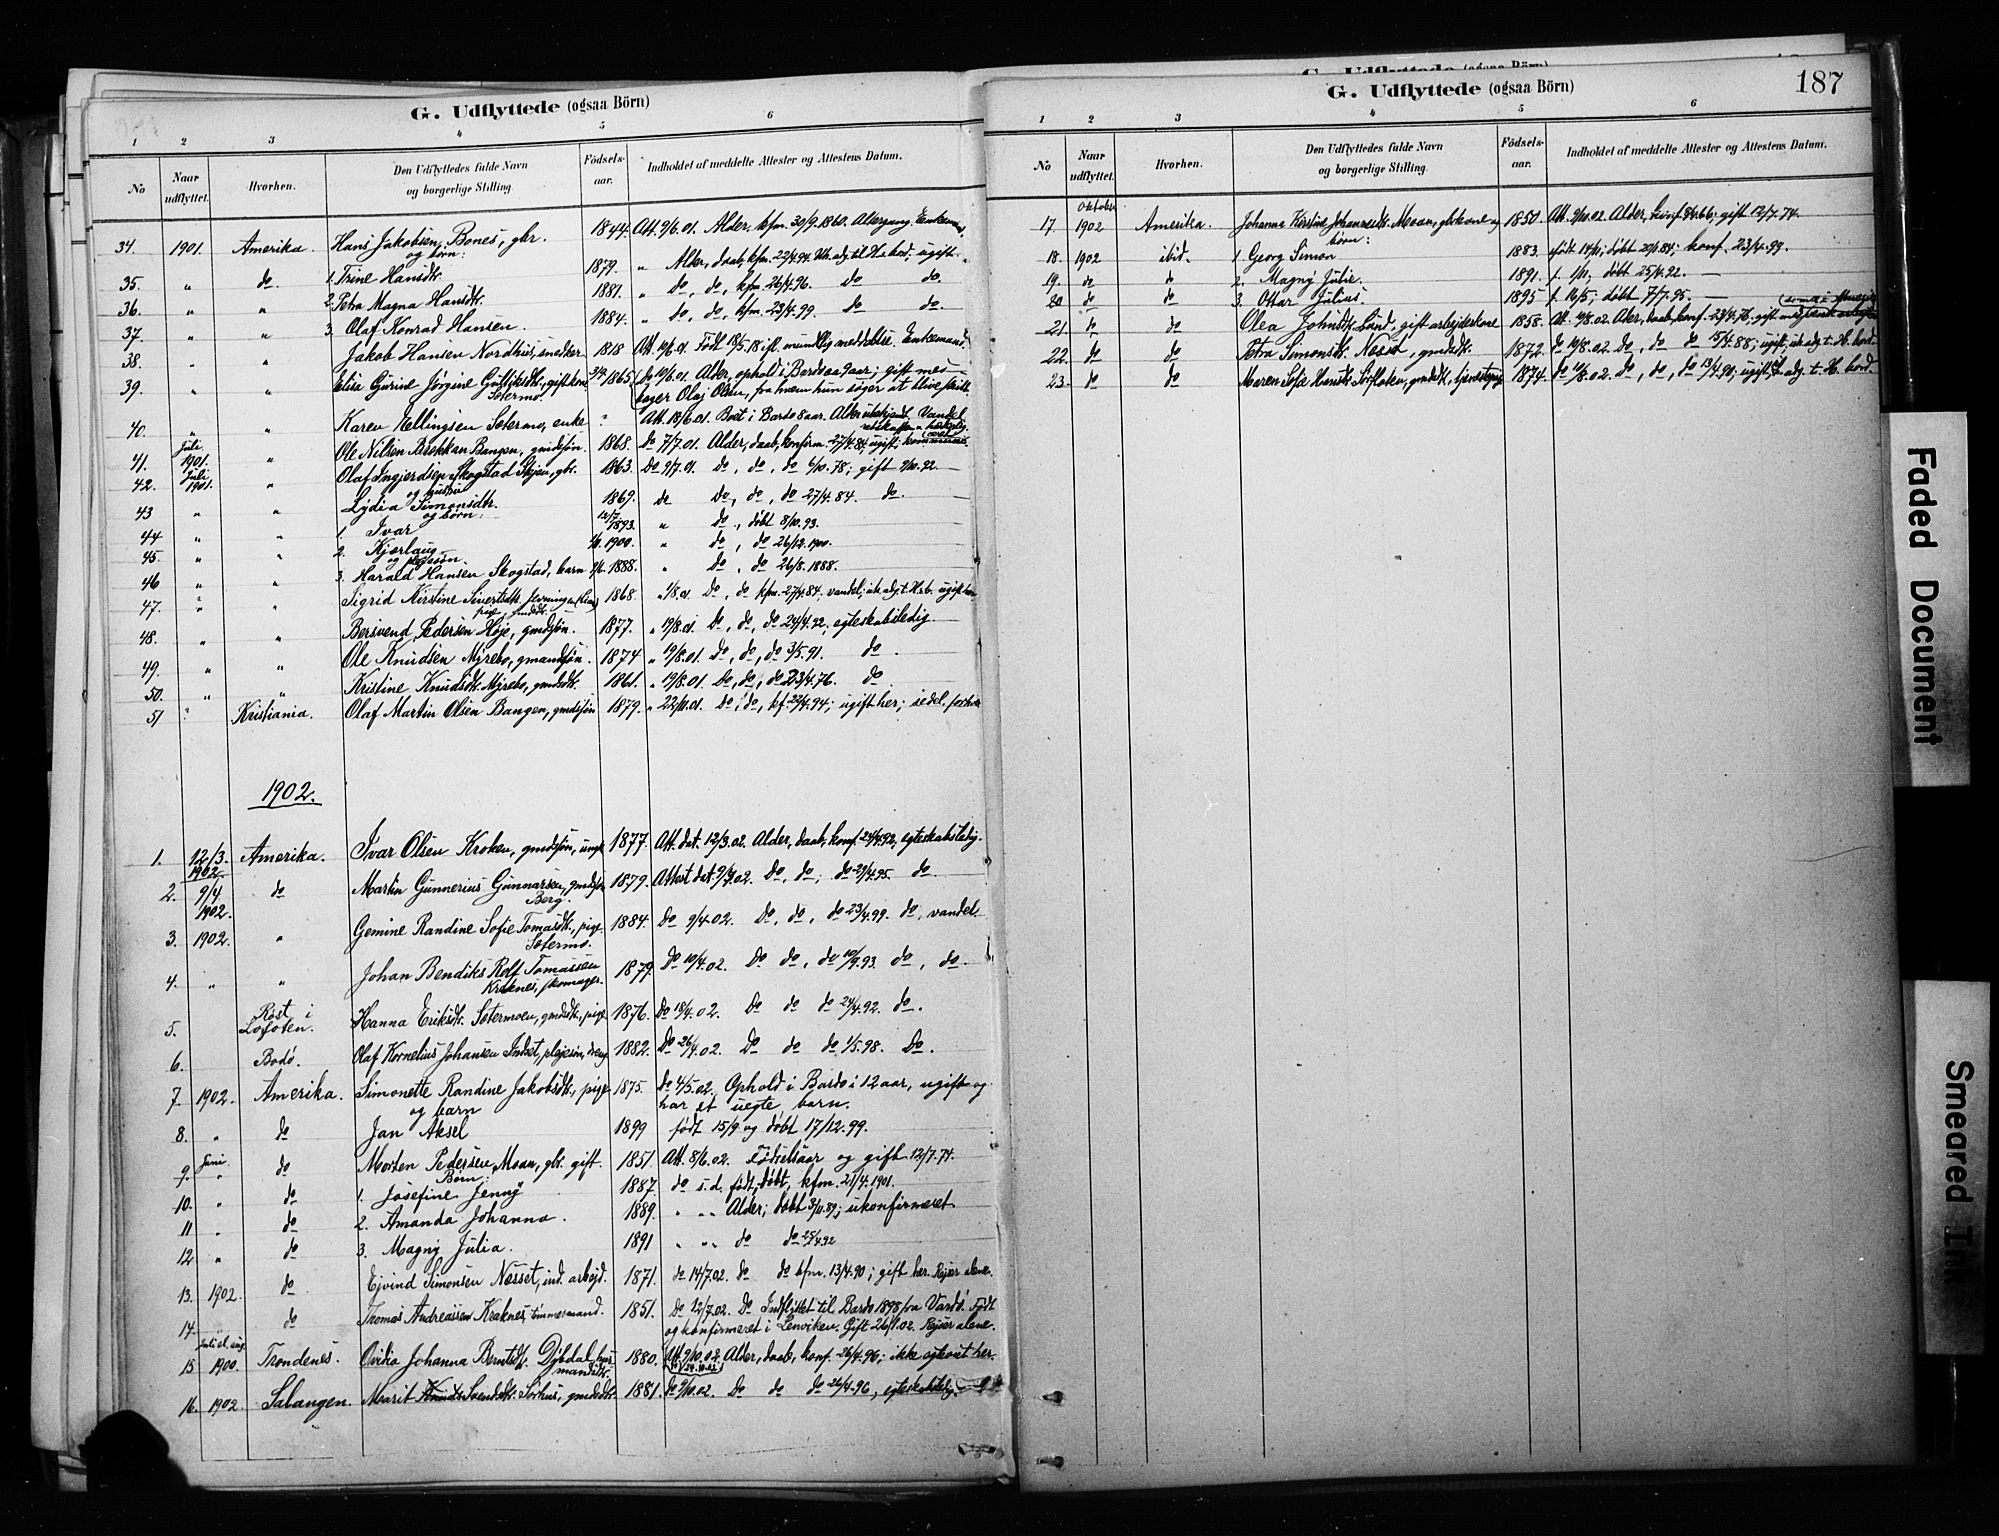 G. Udflyttede (ogsaa Börn)
1 2 3 4 5 6
No Naar udflyttet. Hvorhen. Den Udflyttedes fulde Navn og borgerlige Stilling. Fødsels-aar. Indholdet af meddelte Attester og Attestens Datum.
34. 1901. Amerika. Hans Jakobsen Bones, gbr. 1844. Att. 9/6.01. Alder, kfm. 30/9.1860. Altergang. Enkemand.
og børn:
35. " do 1. Trine Hansdt. 1879. " Alder, daab, kfm. 22/4.94. Uh. adj. til H. bord; ugift.
36. " " 2. Petra Magna Hansdt. 1881. " do, do, kfm. 26/4.96. do do.
37. " " 3. Olaf Konrad Hansen. 1884. " do, do, kfm. 23/4.99. do do.
38. " " Jakob Hansen Nordhus, snedker 1818 Att. 10/6.01. Født 18/5.18 ifl. mundtlig meddelelse. Enkemand.
39. " " Elise Gurine Jørgine Gulliksdt., gift kone 1865 Do 10/6.01. Alder, ophold i Bardo aa 9 aar; gift med
Setermo. bager Olaf Olsen, fra hvem hun søger at blive skilt.
40. " " Karen Kellingsen Setermo, enke ? Att. 18/6.01. Boet i Bardo 8 aar. Alder ubekjendt. Vandel
41. Juli 1901. " Ole Nilsen Brekkan Bangen, gmdsøn. 1868. Do 7/7.01. Alder, daab, konfirm. 27/4.84; ugift;
42. Juli 1901. " Olaf Ingjerdsen Skogstad, gbr. 1863. Do 9/7.01. do, do, do 6/10.78; gift 9/10.92.
og hustru
43 " " Lydia Simonsdt. 1869. do Do, do, do 27/4.84. do.
og børn:
44 " " 1. Ivar 12/7 1893. " do, døbt 8/10.93.
45. " " 2. Kjærlaug 1900. " do, do 26/12.1900.
og plejesøn.
46 " " 3. Harald Hansen Skogstad, barn 1888. " do, do 26/8.1888.
47. " " Sigrid Kirstine Sivertsdt. 1868. " 1/8.01 Do, do kfm. 27/4.84. vandel; uh. adj. t. H. b. ugift her
pige, gmdsdt.
48. " " Bersvend Pedersen Høje, gmdsøn. 1877. " 19/8.01 Do, do, do 24/4.92, egteskabsledig
49. " " Ole Knudsen Myrebo, gmandsøn. 1874 " 19/8.01. Do, do, do 3/5.91. do.
50. " " Kristine Knudsdt. Myrebo, gmdsdt. 1861. " 19/8.01. Do, do, do 23/4.76. do.
51 " Kristiania. Olaf Martin Olsen Bangen, gmdsøn 1879. " 22/11.01. Do, do, kf. 22/4.94; ugift her; sedel. forhold
1902.
1. 12/3. 1902 Amerika. Ivar Olsen Kroken, gmdsøn, ungk. 1877. Att. dat. 12/3.02. Alder, daab, konf. 24/4.92, egteskabsledig.
2. 9/4 1902. do Martin Gunnerius Gunnarsen, gmdsøn 1879. Attest dat. 9/4.02. Do, do, do 21/4.95. do.
Berg.
3. 1902. " Gemine Randine Sofie Tomasdt., pige. 1884. Do 9/4.02. Do, do, do 23/4.99. do, vandel.
Setermo.
4. " " Johan Bendiks Rolf Tomassen 1879. Do 10/4.02. Do do, do 10/9.93. do, do.
Kraknes, skomager.
5. Røst i Lofoten. Hanna Eriksdt. Setermoen, gmdsdt., pige 1876. Do 18/4.02. Do do do 24/4.92. do.
6. Bodö. Olaf Kornelius Johansen Indset, plejesøn, dreng 1882. Do 26/4.02. Do do do 1/5.98. Do.
7. 1902. Amerika. Simonette Randine Jakobsdt., pige 1875. Do 4/5.02. Ophold i Bardo i 12 aar, ugift og
og barn har et uegte barn.
8. " do Jan Aksel 1899 født 15/9 og døbt 17/12.99.
9. Juni. " do Morten Pedersen Moan, gbr. gift. 1851. Att. 8/6.02. Fødselsaar og gift 12/7.74.
Børn:
10. " do 1. Josefine Jenny 1887. do s.d. født, døbt, kfm. 21/4.1901.
11 " do 2. Amanda Johanna. 1889. " " Alder; døbt 3/11.89; ukonfirmeret
12 " do 3. Magny Julia. 1891 " " do do 25/4.92
13. 1902. do Ejvind Simonsen Nesset, ind. arbejd. 1871. do 14/7.02. do do kfm. 13/4.90; gift her. Rejser alene.
14. do Thomas Andreassen Kraknes, tømmermand. 1851. Do 22/7.02. Do Indflyttet til Bardo 1898 fra Vardö. Født
og konfirmeret i Lenviken. Gift 26/1.02. Rejser alene.
15 Juli el. aug. 1900. Trondenes. Ovidia Johanna Berntsdt. Dybdal, hus- 1880. Att. 9/10.02. Alder, daab, konf. 26/4.96; ikke egteviet her.
mandsdt.
16. 1902. Salangen. Marit Svendsdt. Sørhus, gmdsdt. 1881. do 9/10.02. Do do do 26/4.96, egteskabsledig.
G. Udflyttede (ogsaa Börn)
187
G. Udflyttede (ogsaa Börn)
1 2 3 4 5 6
No Naar udflyttet. Hvorhen. Den Udflyttedes fulde Navn og borgerlige Stilling. Fødsels-aar. Indholdet af meddelte Attester og Attestens Datum.
17. Oktober 1902 Amerika. Johanna Kirstine Johannesdt. Moan, gbrkone og 1850. Att. 9/10.02. Alder, konf. 66; gift 12/7.74.
børn:
18. 1902 ibid. 1 Georg Simon 1883. født 14/11; døbt 20/1.84; konf. 23/4.99.
19. do do 2. Magny Julie. 1891. f. 1/10; døbt 25/4.92.
20 do do 3. Ottar Julius. 1895 f. 16/5; døbt 7/7.95.
21. do do Olea Johnsdt. Lund, gift arbejderkone 1858. Att. 10/8.02. Alder, daab, konf. 23/4.76;
22. do do Petra Simonsdt. Nesset, gmdsdt. 1872. do 10/8.02. Do, do do 15/4.88; ugift; uh. adj. t. H. bord.
23. do do Maren Sofie Hansdt. Sørfloten, gmdsdt., tjenestepige 1874. do 11/8.02. Do, do, do 13/4.90; ugift, uh. adj. t. H. bord.
Faded Document
Smeared Ink